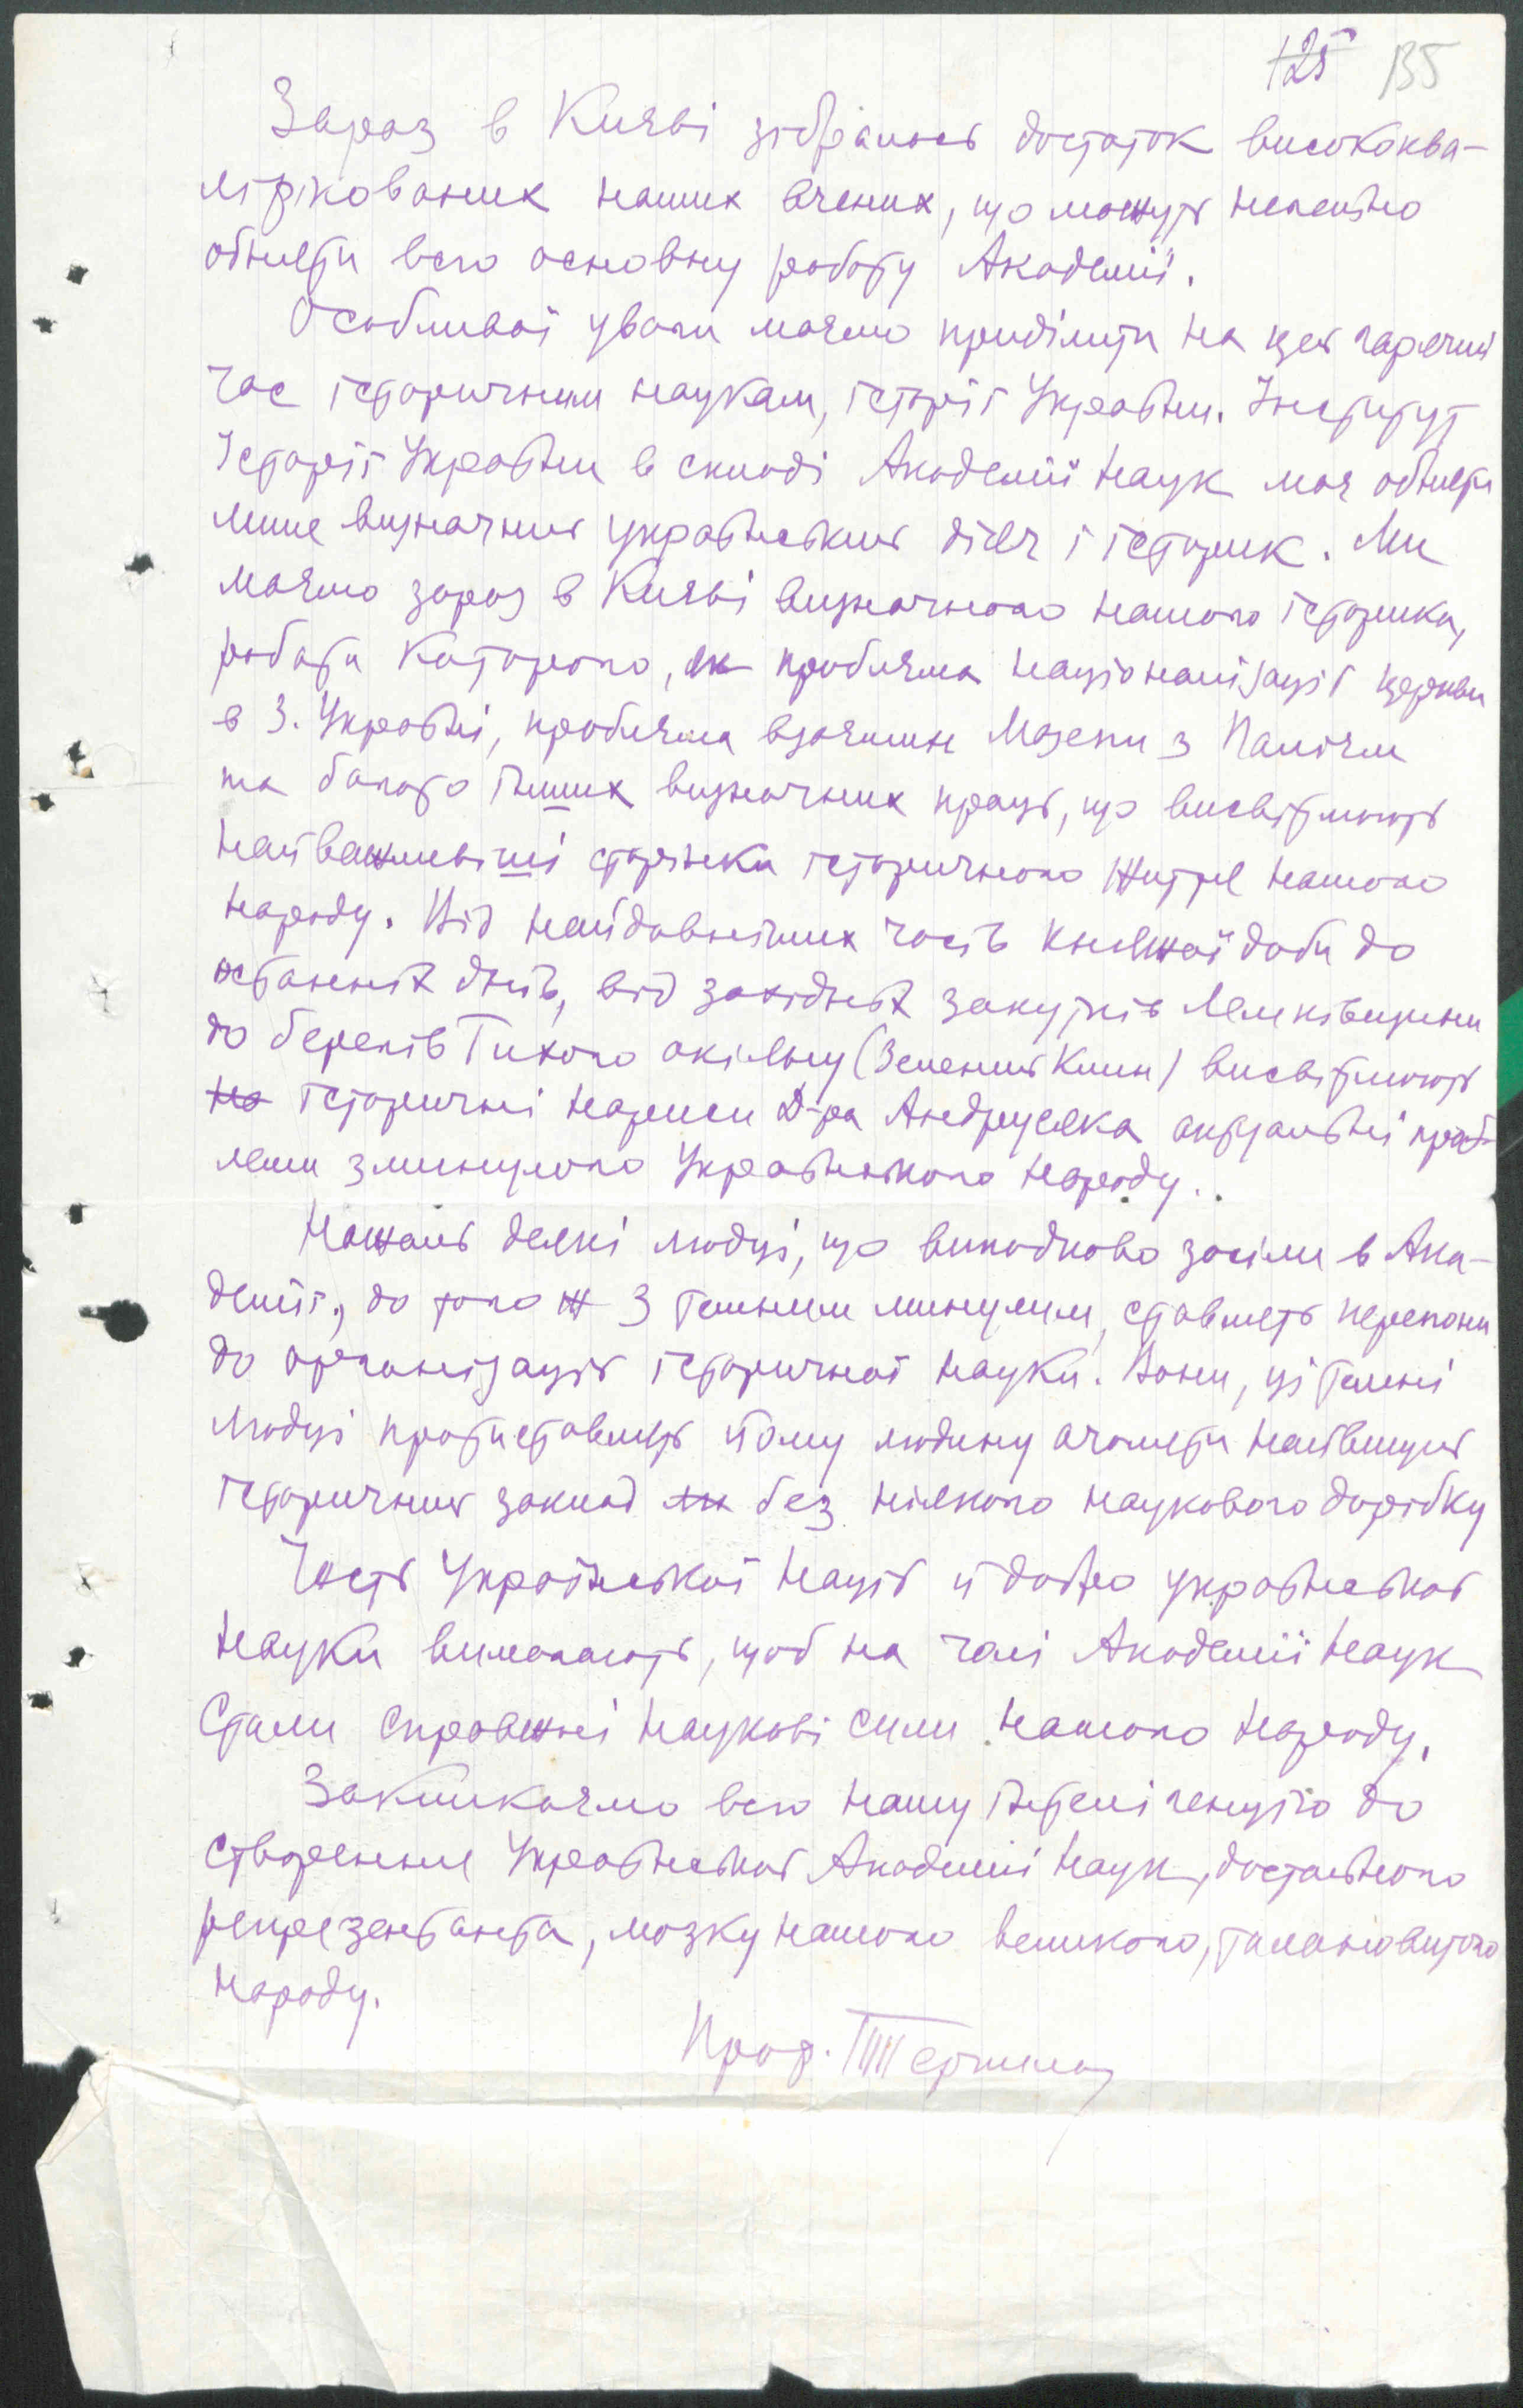 125 135
Зараз в Києві зібралось достаток висококва-
ліфікованих наших вчених, що можуть належно
обняти всю основну роботу Академії.
Особливої уваги маємо приділити на цей гарячий
час історичним наукам, історії України. Інститут
Історії України в складі Академії Наук має обняти
лише визначний український діяч і історик. Ми
маємо зараз в Києві визначного нашого історика,
роботи которого, як проблема націоналізації церкви
в З. Україні, проблема взаємин Мазепи з Палієм
та багато інших визначних праць, що висвітлюють
найважливіші сторінки історичного життя нашого
народу. Від найдавніших часів княжої доби до
останніх днів, від західніх закутків Лемківщини
до берегів Тихого океану (Зелений Клин) висвітлюють
на історичні нариси Д-ра Андрусяка актуальні проб-
леми з минулого Українського народу.
Нажаль деякі людці, що випадково засіли в Ака-
демії, до того ж з темним минулим, ставлять перепони
до організації історичної науки. Вони, ці темні
людці протиставлять йому людину очоляти найвищий
історичний заклад без ніякого наукового дорібку
Честь Української Нації й добро української
науки вимагають, щоб на чолі Академії Наук
стали справжні наукові сили нашого народу.
Закликаємо всю нашу інтелігенцію до
створення Української Академії Наук, достойного
репрезентанта, мозку нашого великого, талановитого
народу.
Проф.